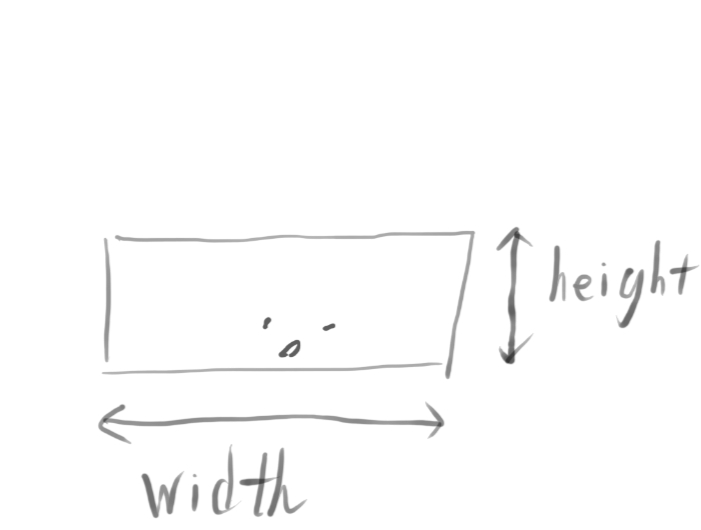 height
width